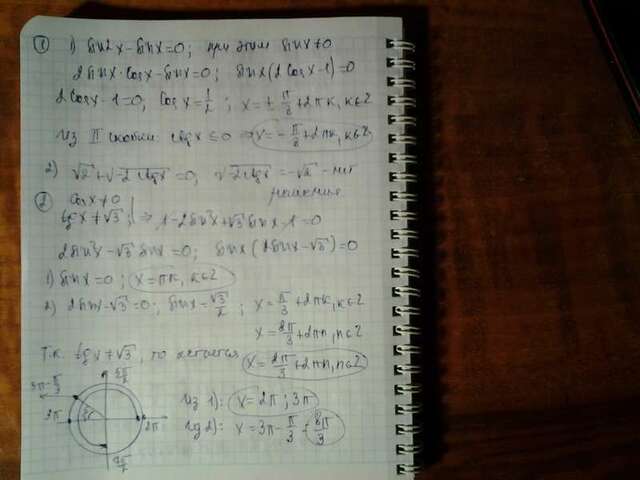 ① 1) sin2x-sinx=0; при этом sinx≠0
2sinx·cosx-sinx=0; sinx(2cosx-1)=0
2cosx-1=0; cosx=1/2; x=±π/3+2πk, k∈Z
Из II скобки: ctgx≤0 ⇒ x=-π/3+2πk, k∈Z
2) √2+√-2ctgx=0; √-2ctgx=-√2 - нет
решения
② cosx≠0
tgx≠√3; ⇒ 1-2sin²x+√3sinx-1=0
2sin²x-√3sinx=0; sinx(2sinx-√3)=0
1) sinx=0; x=πk, k∈Z
2) 2sinx-√3=0; sinx=√3/2; x=π/3+2πk, k∈Z
x=2π/3+2πn, n∈Z
Т.к. tgx≠√3, то остается x=2π/3+2πn, n∈Z
3π-π/3 5π/2
3π 2π
Из 1): x=2π; 3π
Из 2): x=3π-π/3=8π/3